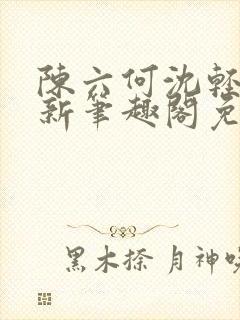 陳六何沈輕
新筆趣閣免
黑木捺 月神